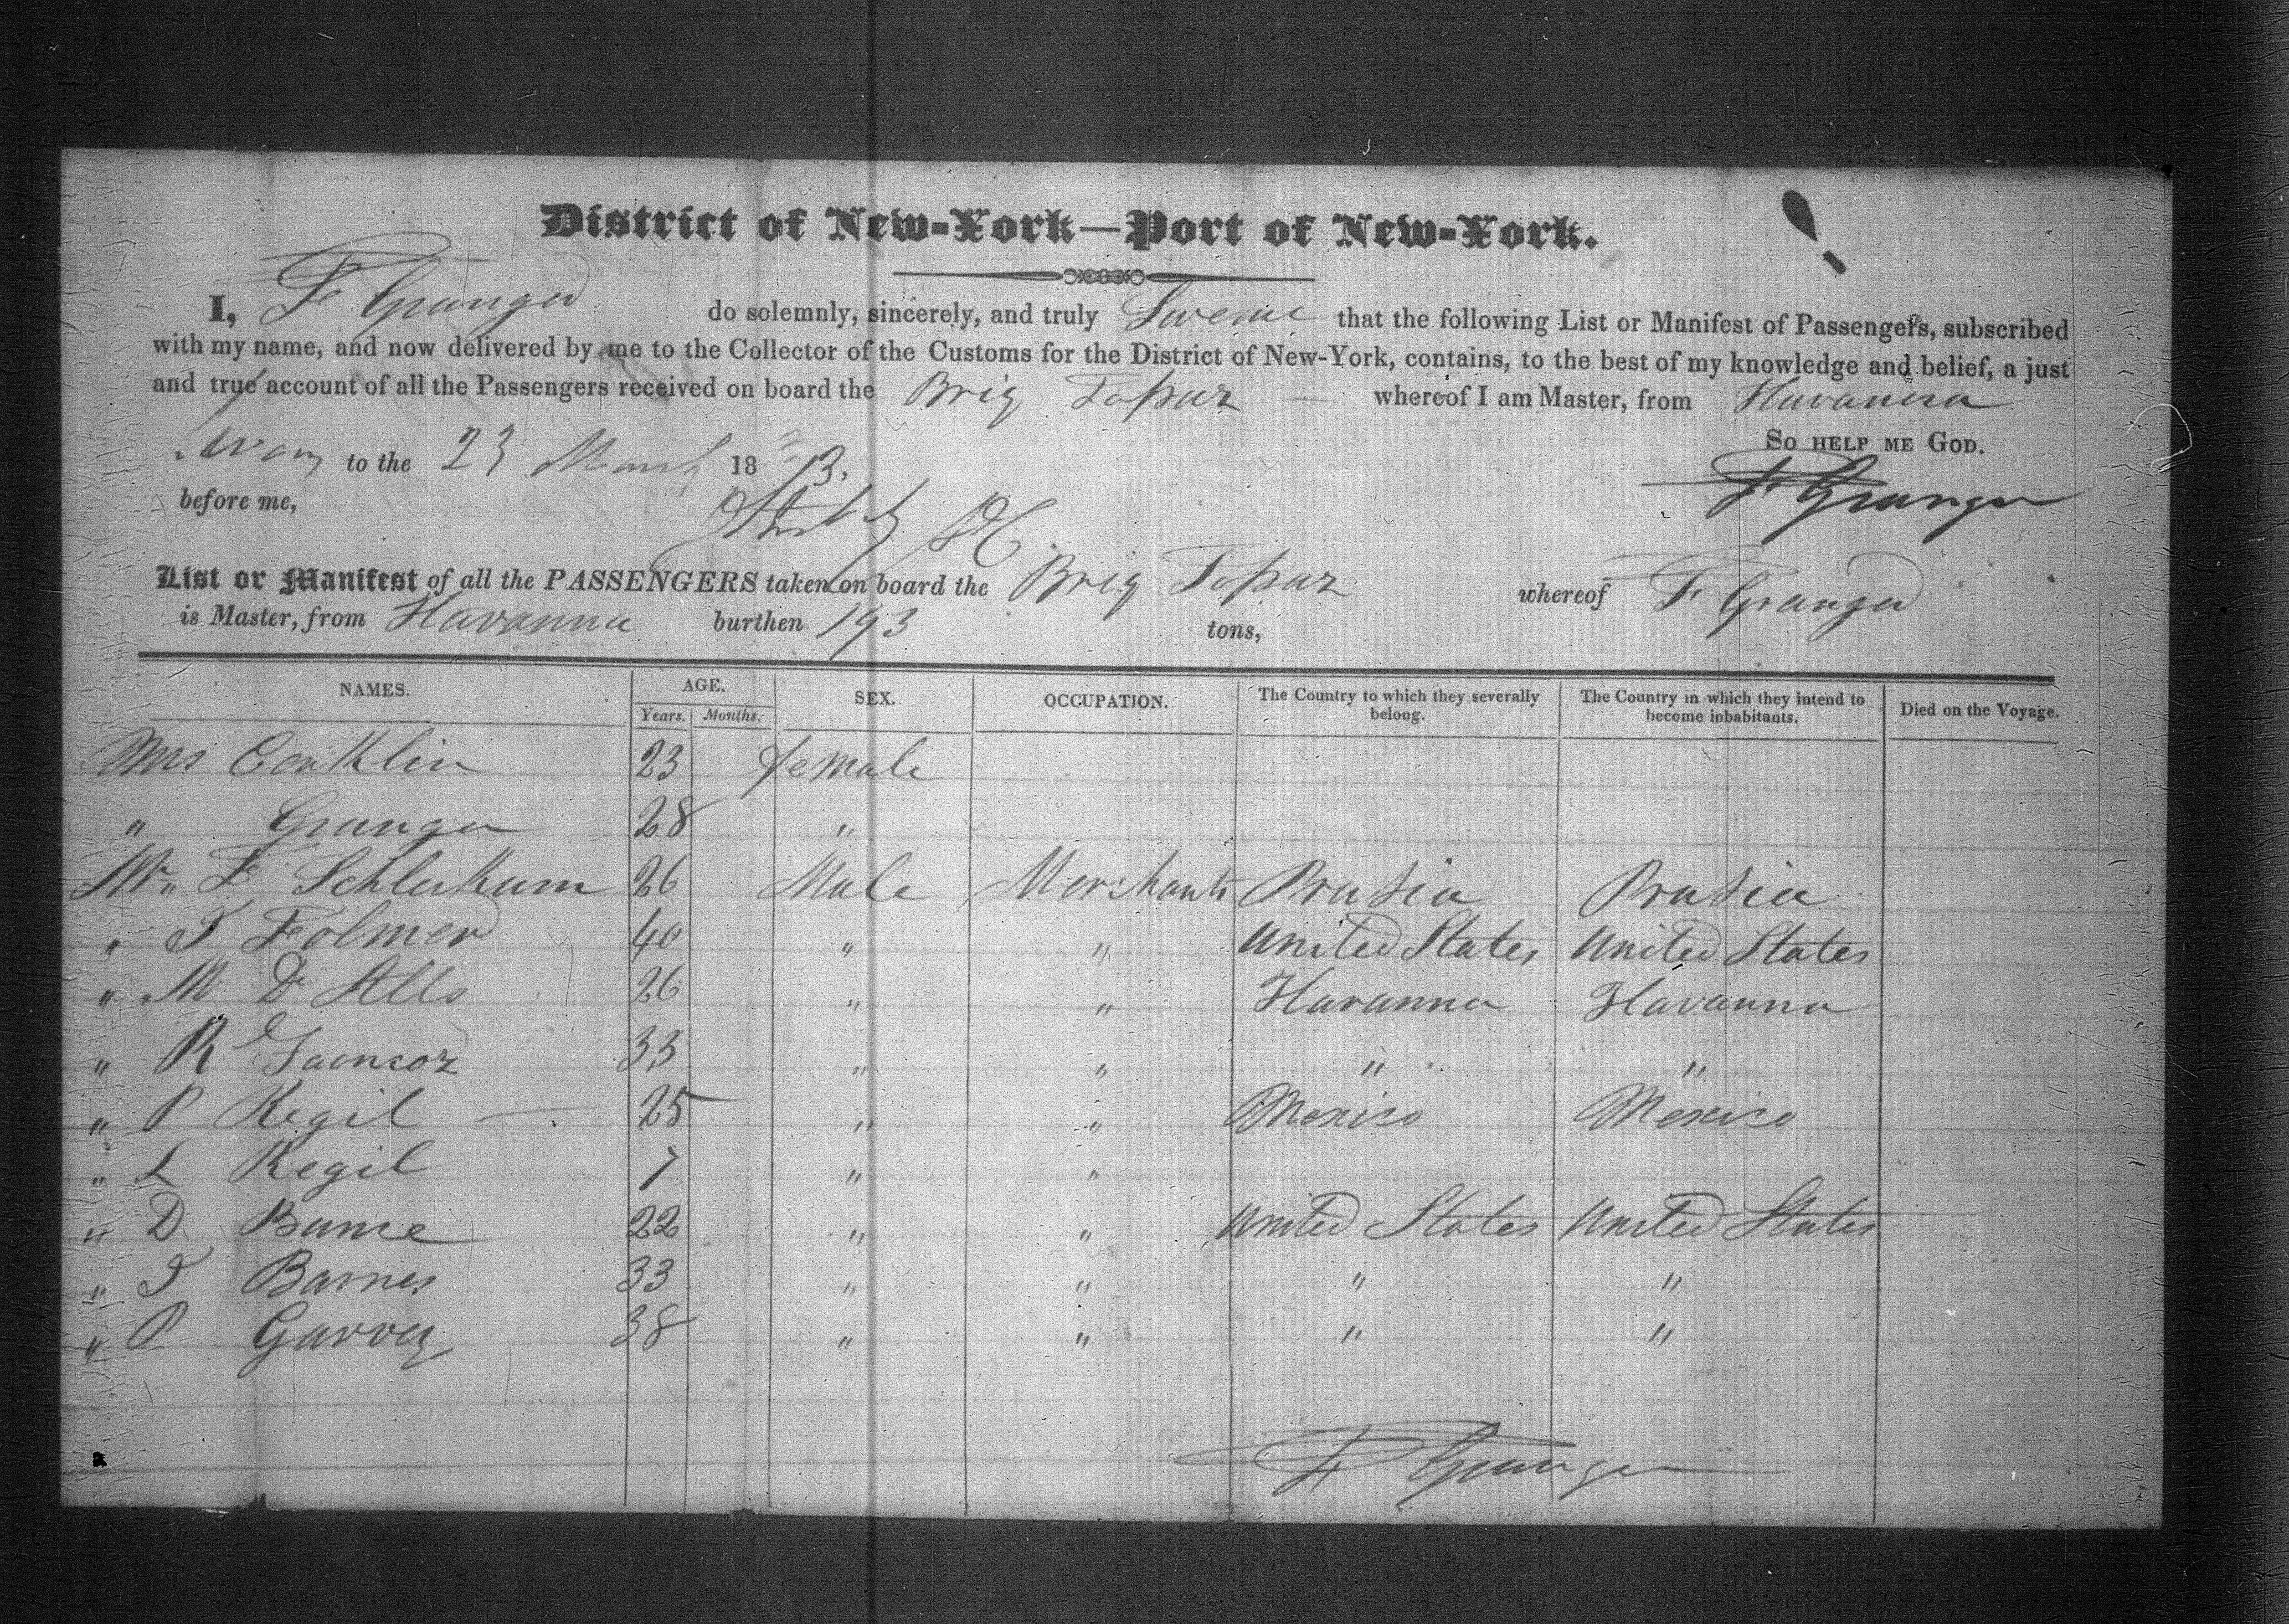 District of New-York—Port of New-York.
I, F Granger do solemnly, sincerely, and truly Swear that the following List or Manifest of Passengers, subscribed
with my name, and now delivered by me to the Collector of the Customs for the District of New-York, contains, to the best of my knowledge and belief, a just
and true account of all the Passengers received on board the Brig Topaz whereof I am Master, from Havanna
So help me God.
Sworn to the 23 March 18
before me,
F Granger
List or Manifest of all the PASSENGERS taken on board the Brig Topaz whereof F Granger
is Master, from Havanna burthen 193 tons,
NAMES. AGE. SEX. OCCUPATION. The Country to which they severally belong. The Country in which they intend to become inhabitants. Died on the Voyage.
Years. Months.
Mrs Conklin 23 female
" Granger 28 "
Mr. F 26 Male Merchants Prusia Prusia
" J Folmer 40 " " United States United States
" M D Allo 26 " " Havanna Havanna
" R 33 " " " "
" P Regil 25 " " Mexico Mexico
" L Regil 7 " "
" D Bunce 22 " " United States United States
" J Barnes 33 " " " "
" P Garvey 38 " " " "
F Granger